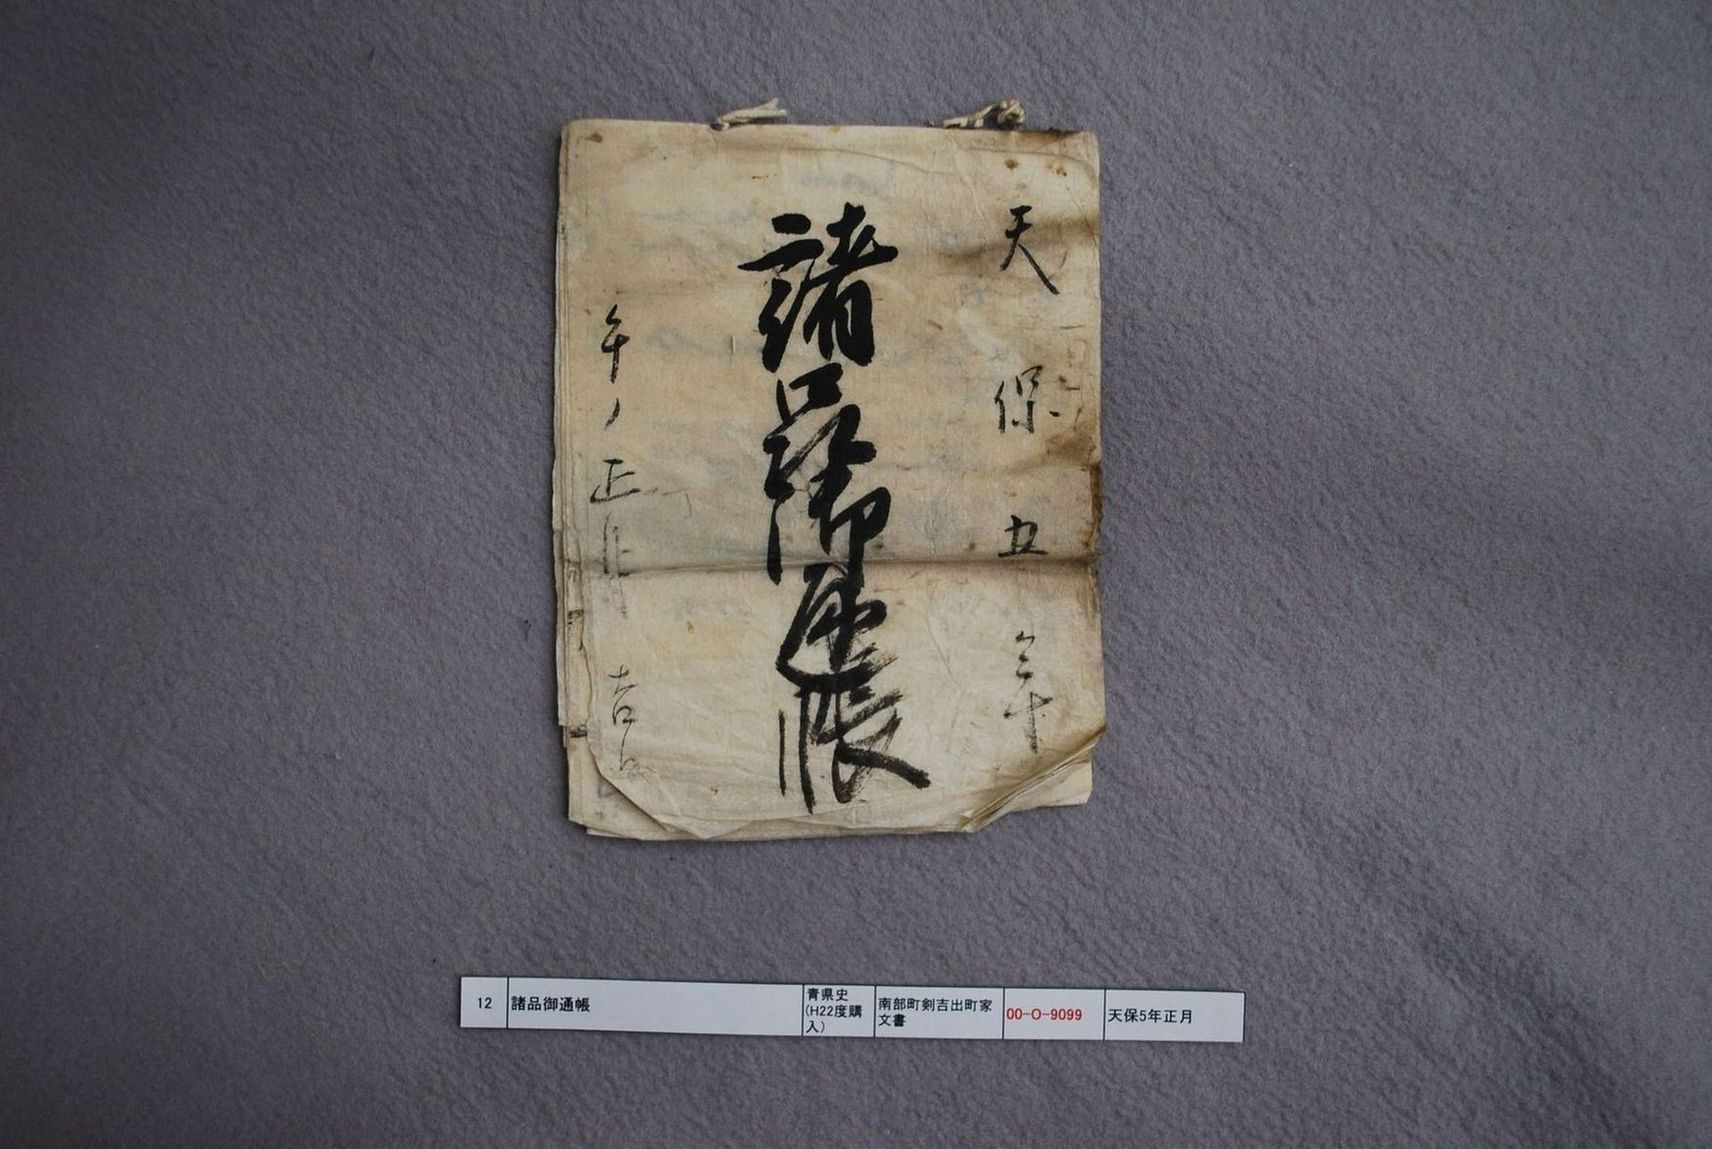 天保五年
諸品御通帳
午ノ正月吉日
12 諸品御通帳 青県史(H22度購入) 南部町剣吉出町家文書 00-O-9099 天保5年正月